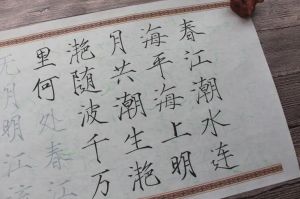 春江潮水连
海平海上明
月共潮生滟
滟随波千万
里何处春江
无月明江